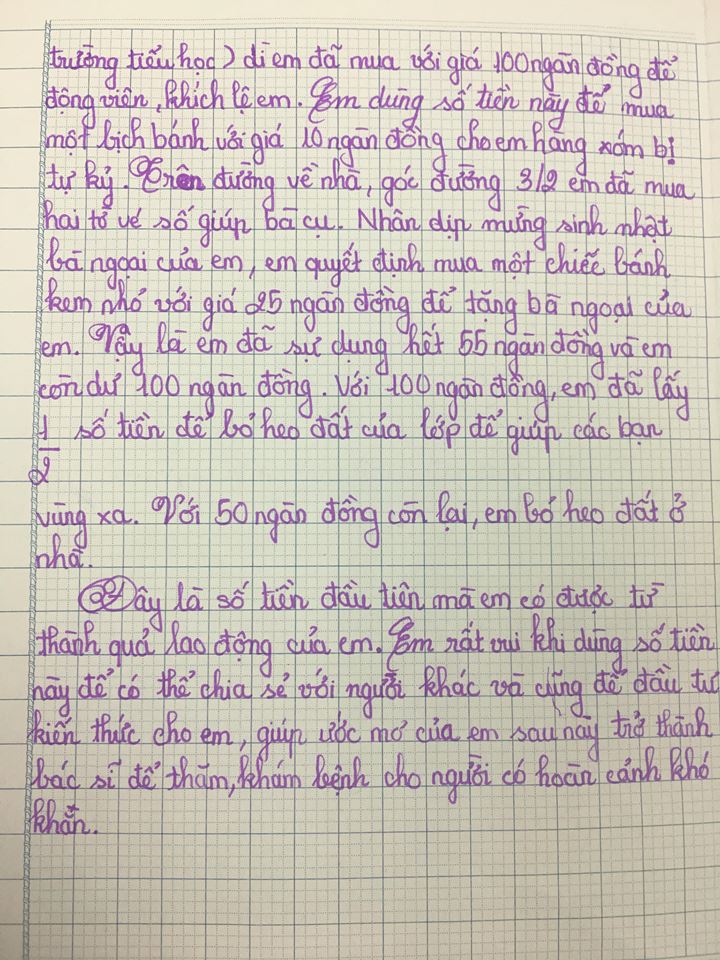 trường tiểu học) dì em đã mua với giá 100 ngàn đồng để
động viên, khích lệ em. Em dùng số tiền này để mua
một bịch bánh với giá 10 ngàn đồng cho em hàng xóm bị
tự kỷ. Trên đường về nhà, góc đường 3/2 em đã mua
hai tờ vé số giúp bà cụ. Nhân dịp mừng sinh nhật
bà ngoại của em, em quyết định mua một chiếc bánh
kem nhỏ với giá 25 ngàn đồng để tặng bà ngoại của
em. Vậy là em đã sự dụng hết 55 ngàn đồng và em
còn dư 100 ngàn đồng. Với 100 ngàn đồng, em đã lấy
1/2 số tiền để bỏ heo đất của lớp để giúp các bạn
vùng xa. Với 50 ngàn đồng còn lại, em bỏ heo đất ở
nhà.
Đây là số tiền đầu tiên mà em có được từ
thành quả lao động của em. Em rất vui khi dùng số tiền
này để có thể chia sẻ với người khác và cũng để đầu tư
kiến thức cho em, giúp ước mơ của em sau này trở thành
bác sĩ để thăm, khám bệnh cho người có hoàn cảnh khó
khăn.